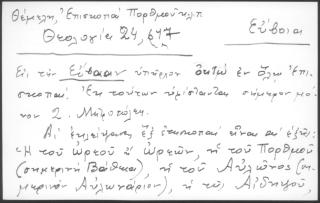 Θέμελη, Ἐπισκοπαὶ Πορθμοῦ κλπ
Θεολογία 24, 647
Εὔβοια
Εἰς τὴν Εὔβοιαν ὑπῆρχον ὀκτὼ ἐν ὅλῳ Ἐπι-
σκοπαί. Ἐκ τούτων ὑφίστανται σήμερον μό-
νον 2. Μητροπόλεις.
Αἱ ἐκλείψασαι ἓξ ἐπισκοπαὶ εἶναι αἱ ἑξῆς:
Ἡ τοῦ Ὠρεοῦ ἢ Ὠρεῶν, ἡ τοῦ Πορθμοῦ
(σημερινὴ Βάθεια), ἡ τοῦ Αὐλῶνος (ση-
μερινὸν Αὐλωνάριον), ἡ τῆς Αἰδηψοῦ,